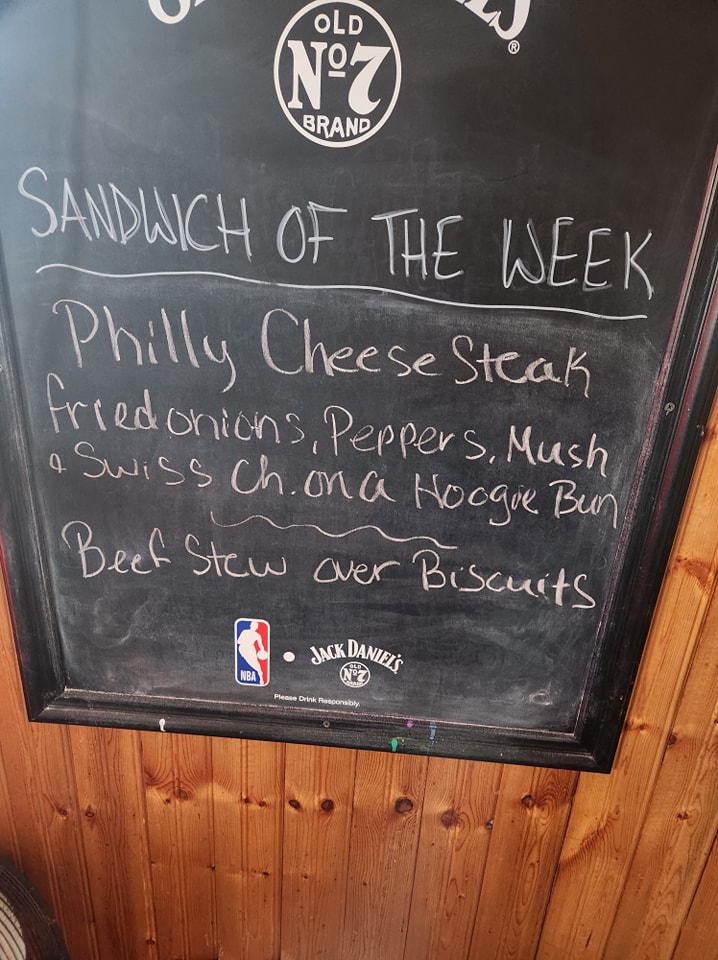 OLD
Nº7
BRAND
®
SANDWICH OF THE WEEK
Philly Cheese Steak
fried onions, Peppers, Mush
& Swiss Ch. on a Hoogie Bun
Beef Stew over Biscuits
NBA
JACK DANIEL'S
OLD
Nº7
BRAND
Please Drink Responsibly.